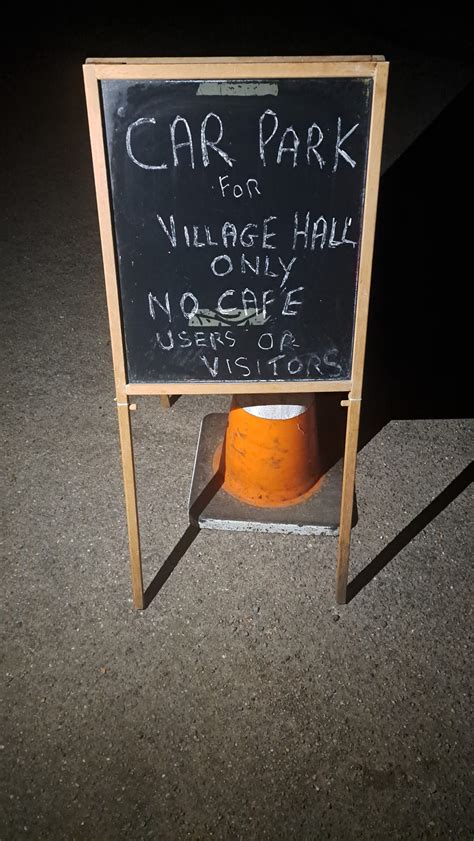 CAR PARK
FOR
VILLAGE HALL
ONLY
NO CAFE
USERS OR
VISITORS